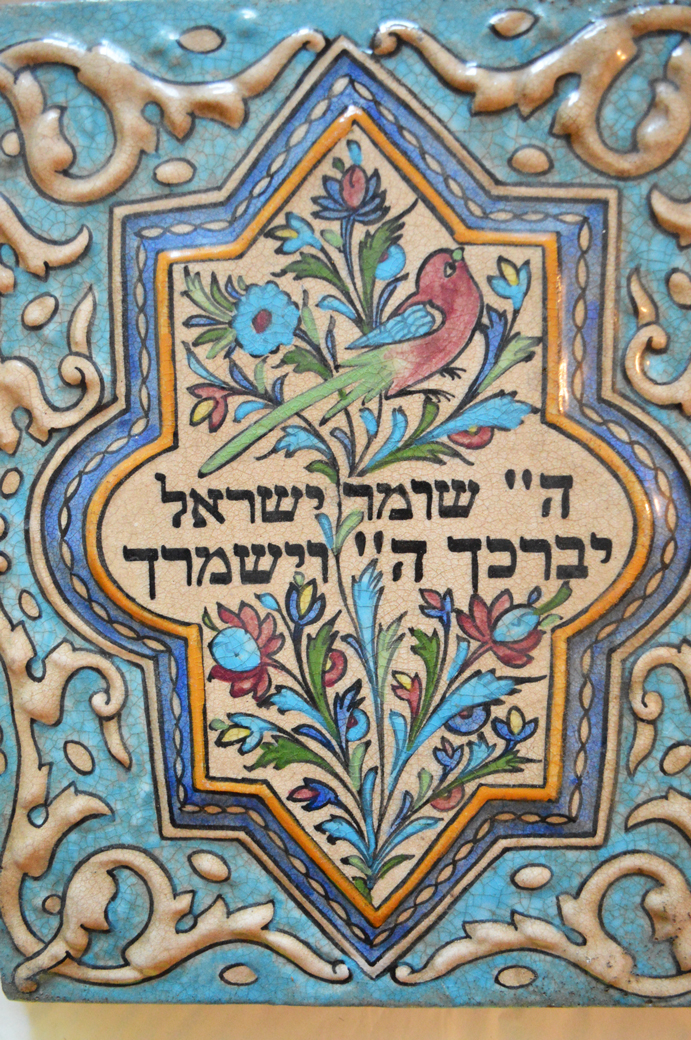 ה" שומר ישראל
יברכך ה" וישמרך